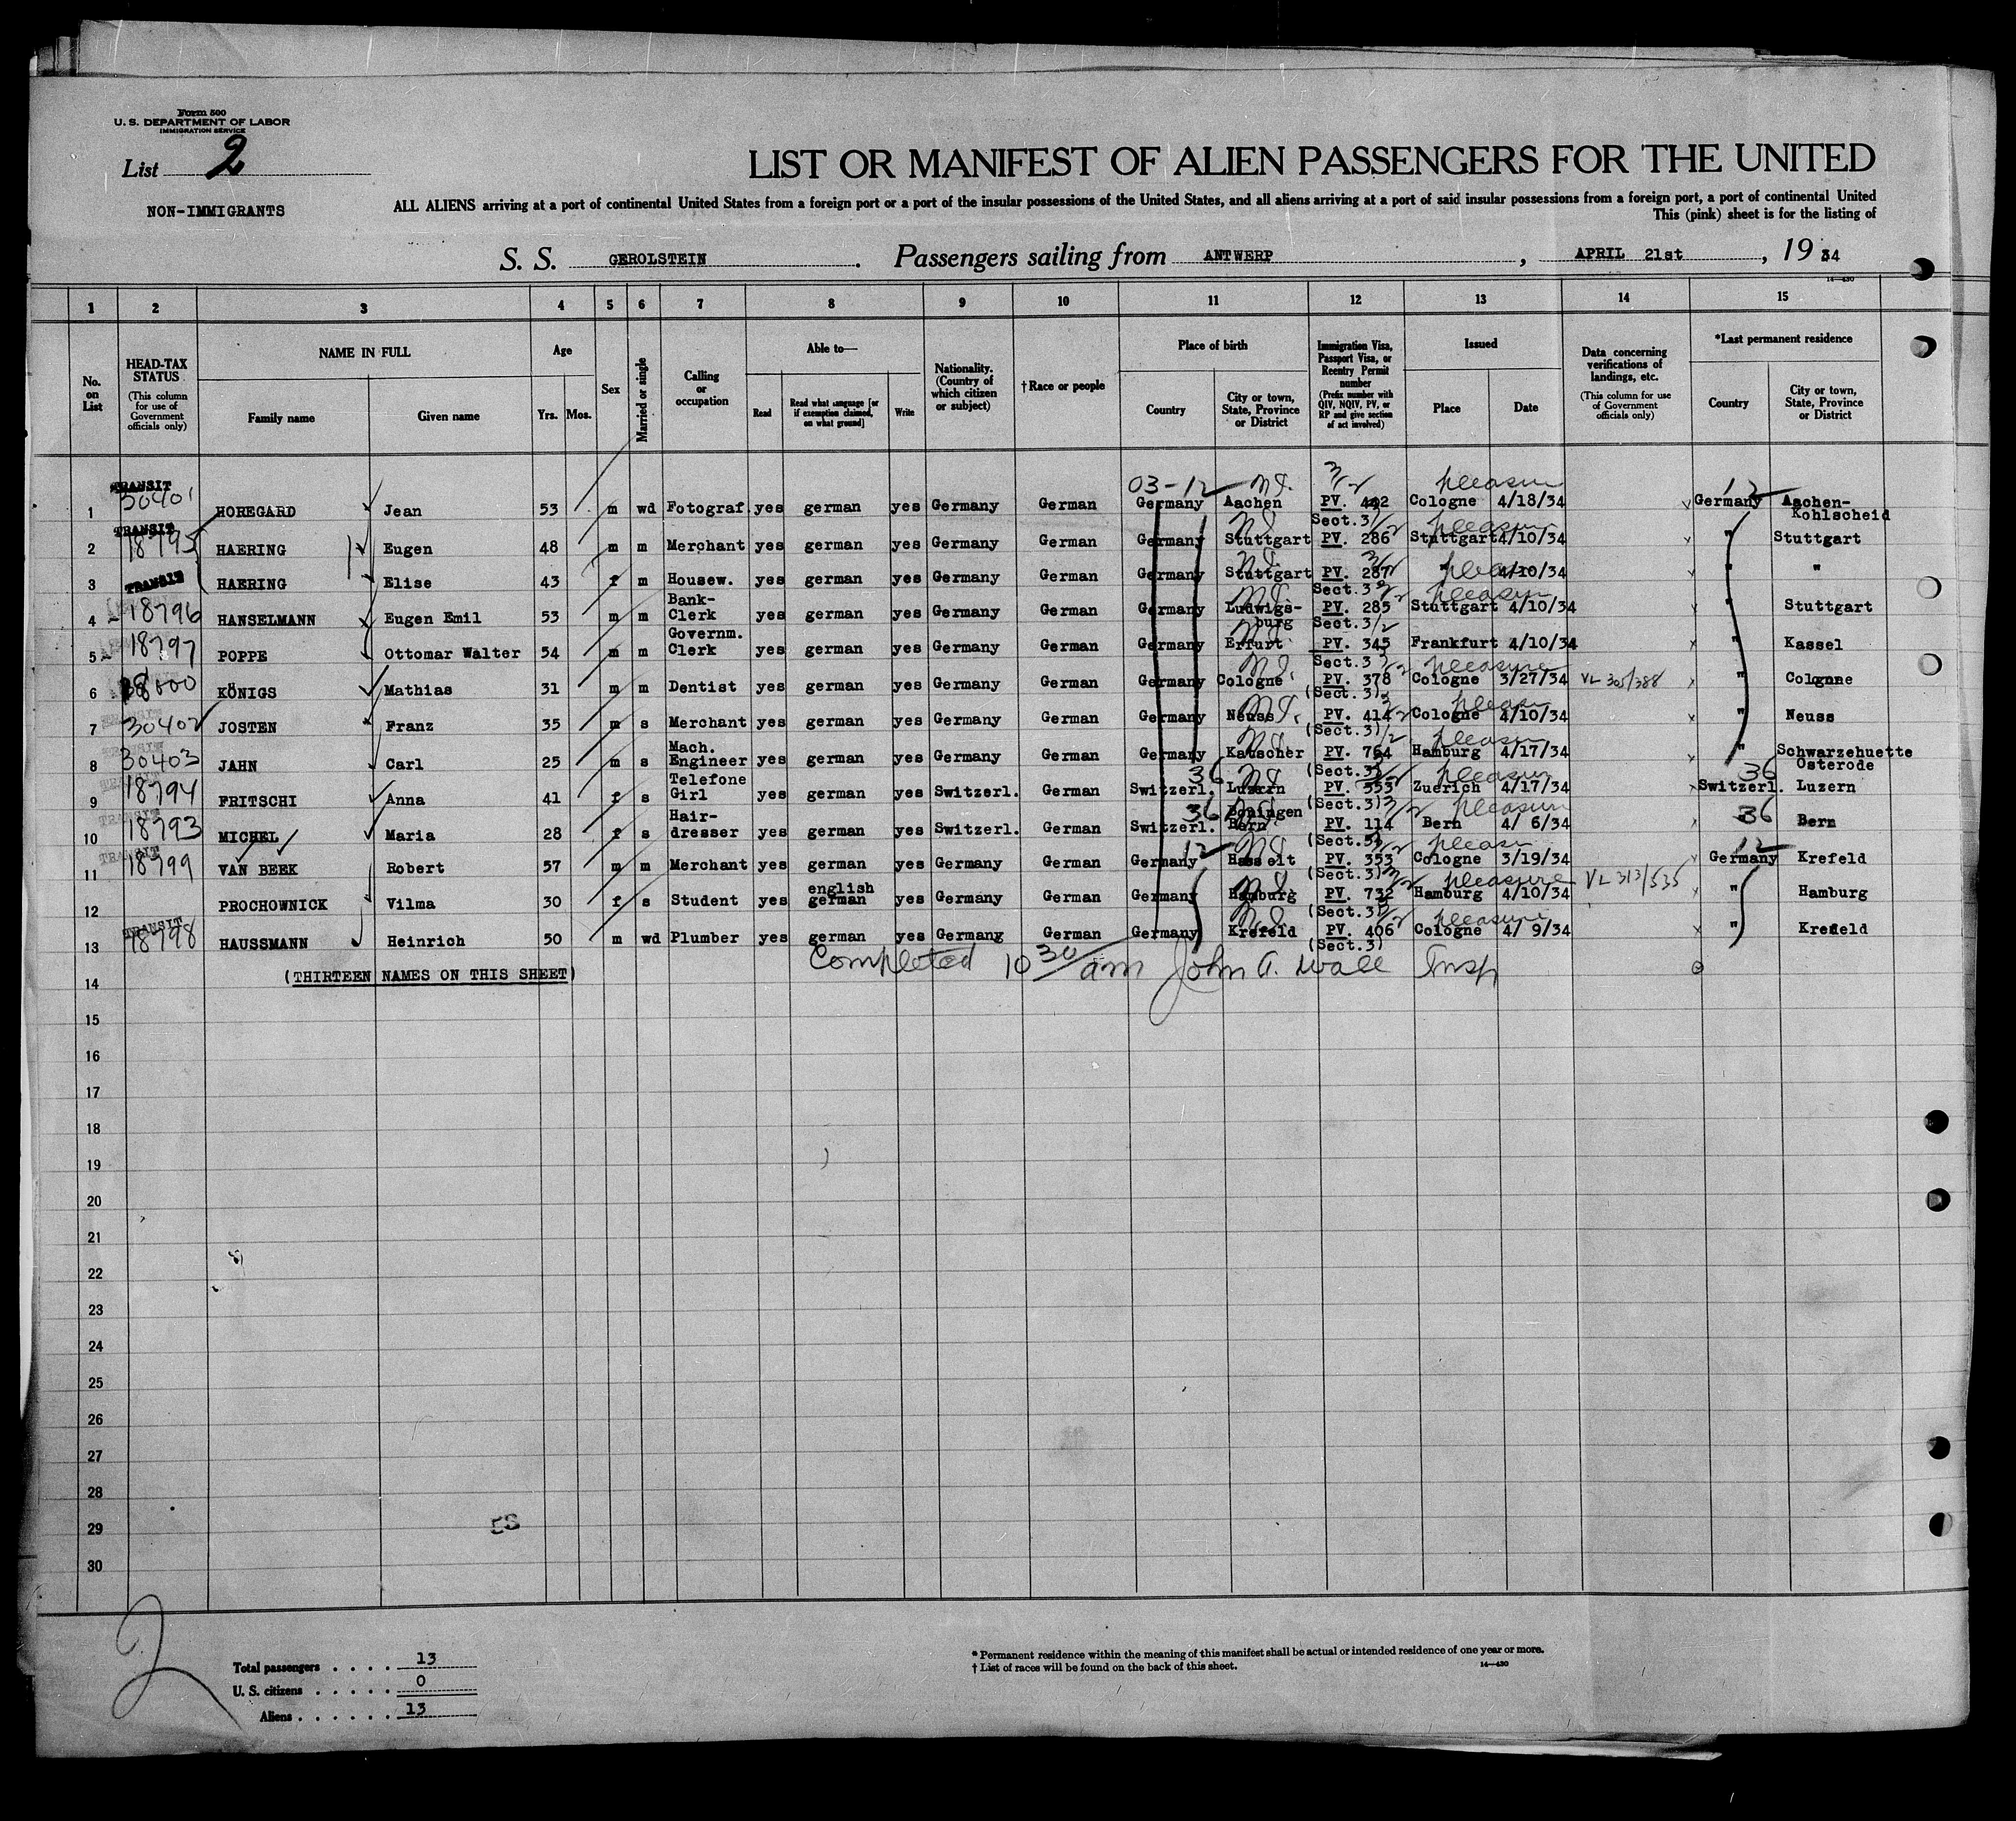 Form 500
U. S. DEPARTMENT OF LABOR
IMMIGRATION SERVICE
List 2
NON-IMMIGRANTS
LIST OR MANIFEST OF ALIEN PASSENGERS FOR THE UNITED
ALL ALIENS arriving at a port of continental United States from a foreign port or a port of the insular possessions of the United States, and all aliens arriving at a port of said insular possessions from a foreign port, a port of continental United
This (pink) sheet is for the listing of
S. S. GEROLSTEIN. Passengers sailing from ANTWERP, APRIL 21st, 1934
14—430
1 2 3 4 5 6 7 8 9 10 11 12 13 14 15
No. on List
HEAD-TAX STATUS (This column for use of Government officials only)
NAME IN FULL
Family name Given name
Age
Yrs. Mos.
Sex
Married or single
Calling or occupation
Able to—
Read Read what language [or if exemption claimed, on what ground] Write
Nationality. (Country of which citizen or subject)
†Race or people
Place of birth
Country City or town, State, Province or District
Immigration Visa, Passport Visa, or Reentry Permit number (Prefix number with QIV, NQIV, PV, or RP and give section of act involved)
Issued
Place Date
Data concerning verifications of landings, etc. (This column for use of Government officials only)
*Last permanent residence
Country City or town, State, Province or District
03-12 pleasure 12
TRANSIT
1 30401 HOREGARD Jean 53 m wd Fotograf. yes german yes Germany German Germany Aachen PV. 442 Sect.3 Cologne 4/18/34 Germany Aachen-Kohlscheid
TRANSIT
2 18795 HAERING Eugen 48 m m Merchant yes german yes Germany German Germany Stuttgart PV. 286 Stuttgart 4/10/34 " Stuttgart
3 TRANSIT HAERING Elise 43 f m Housew. yes german yes Germany German Germany Stuttgart PV. 287 Sect.3 " 4/10/34 " "
4 18796 HANSELMANN Eugen Emil 53 m m Bank-Clerk yes german yes Germany German Germany Ludwigsburg PV. 285 Sect.3 Stuttgart 4/10/34 " Stuttgart
5 18797 POPPE Ottomar Walter 54 m m Governm. Clerk yes german yes Germany German Germany Erfurt PV. 345 Sect.3 Frankfurt 4/10/34 " Kassel
6 KÖNIGS Mathias 31 m m Dentist yes german yes Germany German Germany Cologne PV. 378 (Sect.3) Cologne 3/27/34 VL 305/388 " Cologne
7 30402 JOSTEN Franz 35 m s Merchant yes german yes Germany German Germany Neuss PV. 414 (Sect.3) Cologne 4/10/34 " Neuss
8 30403 JAHN Carl 25 m s Mach. Engineer yes german yes Germany German Germany Katscher PV. 764 (Sect.3) Hamburg 4/17/34 " Schwarzehuette Osterode
9 18794 FRITSCHI Anna 41 f s Telefone Girl yes german yes Switzerl. German Switzerl. 36 Luzern PV. 553 (Sect.3) Zuerich 4/17/34 Switzerl. 36 Luzern
10 18793 MICHEL Maria 28 f s Hair-dresser yes german yes Switzerl. German Switzerl. 36 Bern PV. 114 (Sect.3) Bern 4/ 6/34 36 Bern
11 18799 VAN BEEK Robert 57 m m Merchant yes german yes Germany German Germany 12 Hasselt PV. 353 (Sect.3) Cologne 3/19/34 Germany 12 Krefeld
12 PROCHOWNICK Vilma 30 f s Student yes english german yes Germany German Germany Hamburg PV. 732 (Sect.3) Hamburg 4/10/34 VL 313/535 " Hamburg
TRANSIT
13 18798 HAUSSMANN Heinrich 50 m wd Plumber yes german yes Germany German Germany Krefeld PV. 406 (Sect.3) Cologne 4/ 9/34 " Krefeld
Completed 10 30/am John A. Wall Insp
14 (THIRTEEN NAMES ON THIS SHEET)
15
16
17
18
19
20
21
22
23
24
25
26
27
28
29
30
2
Total passengers . . . . 13
U. S. citizens . . . . . 0
Aliens . . . . . . 13
* Permanent residence within the meaning of this manifest shall be actual or intended residence of one year or more.
† List of races will be found on the back of this sheet.
14—430